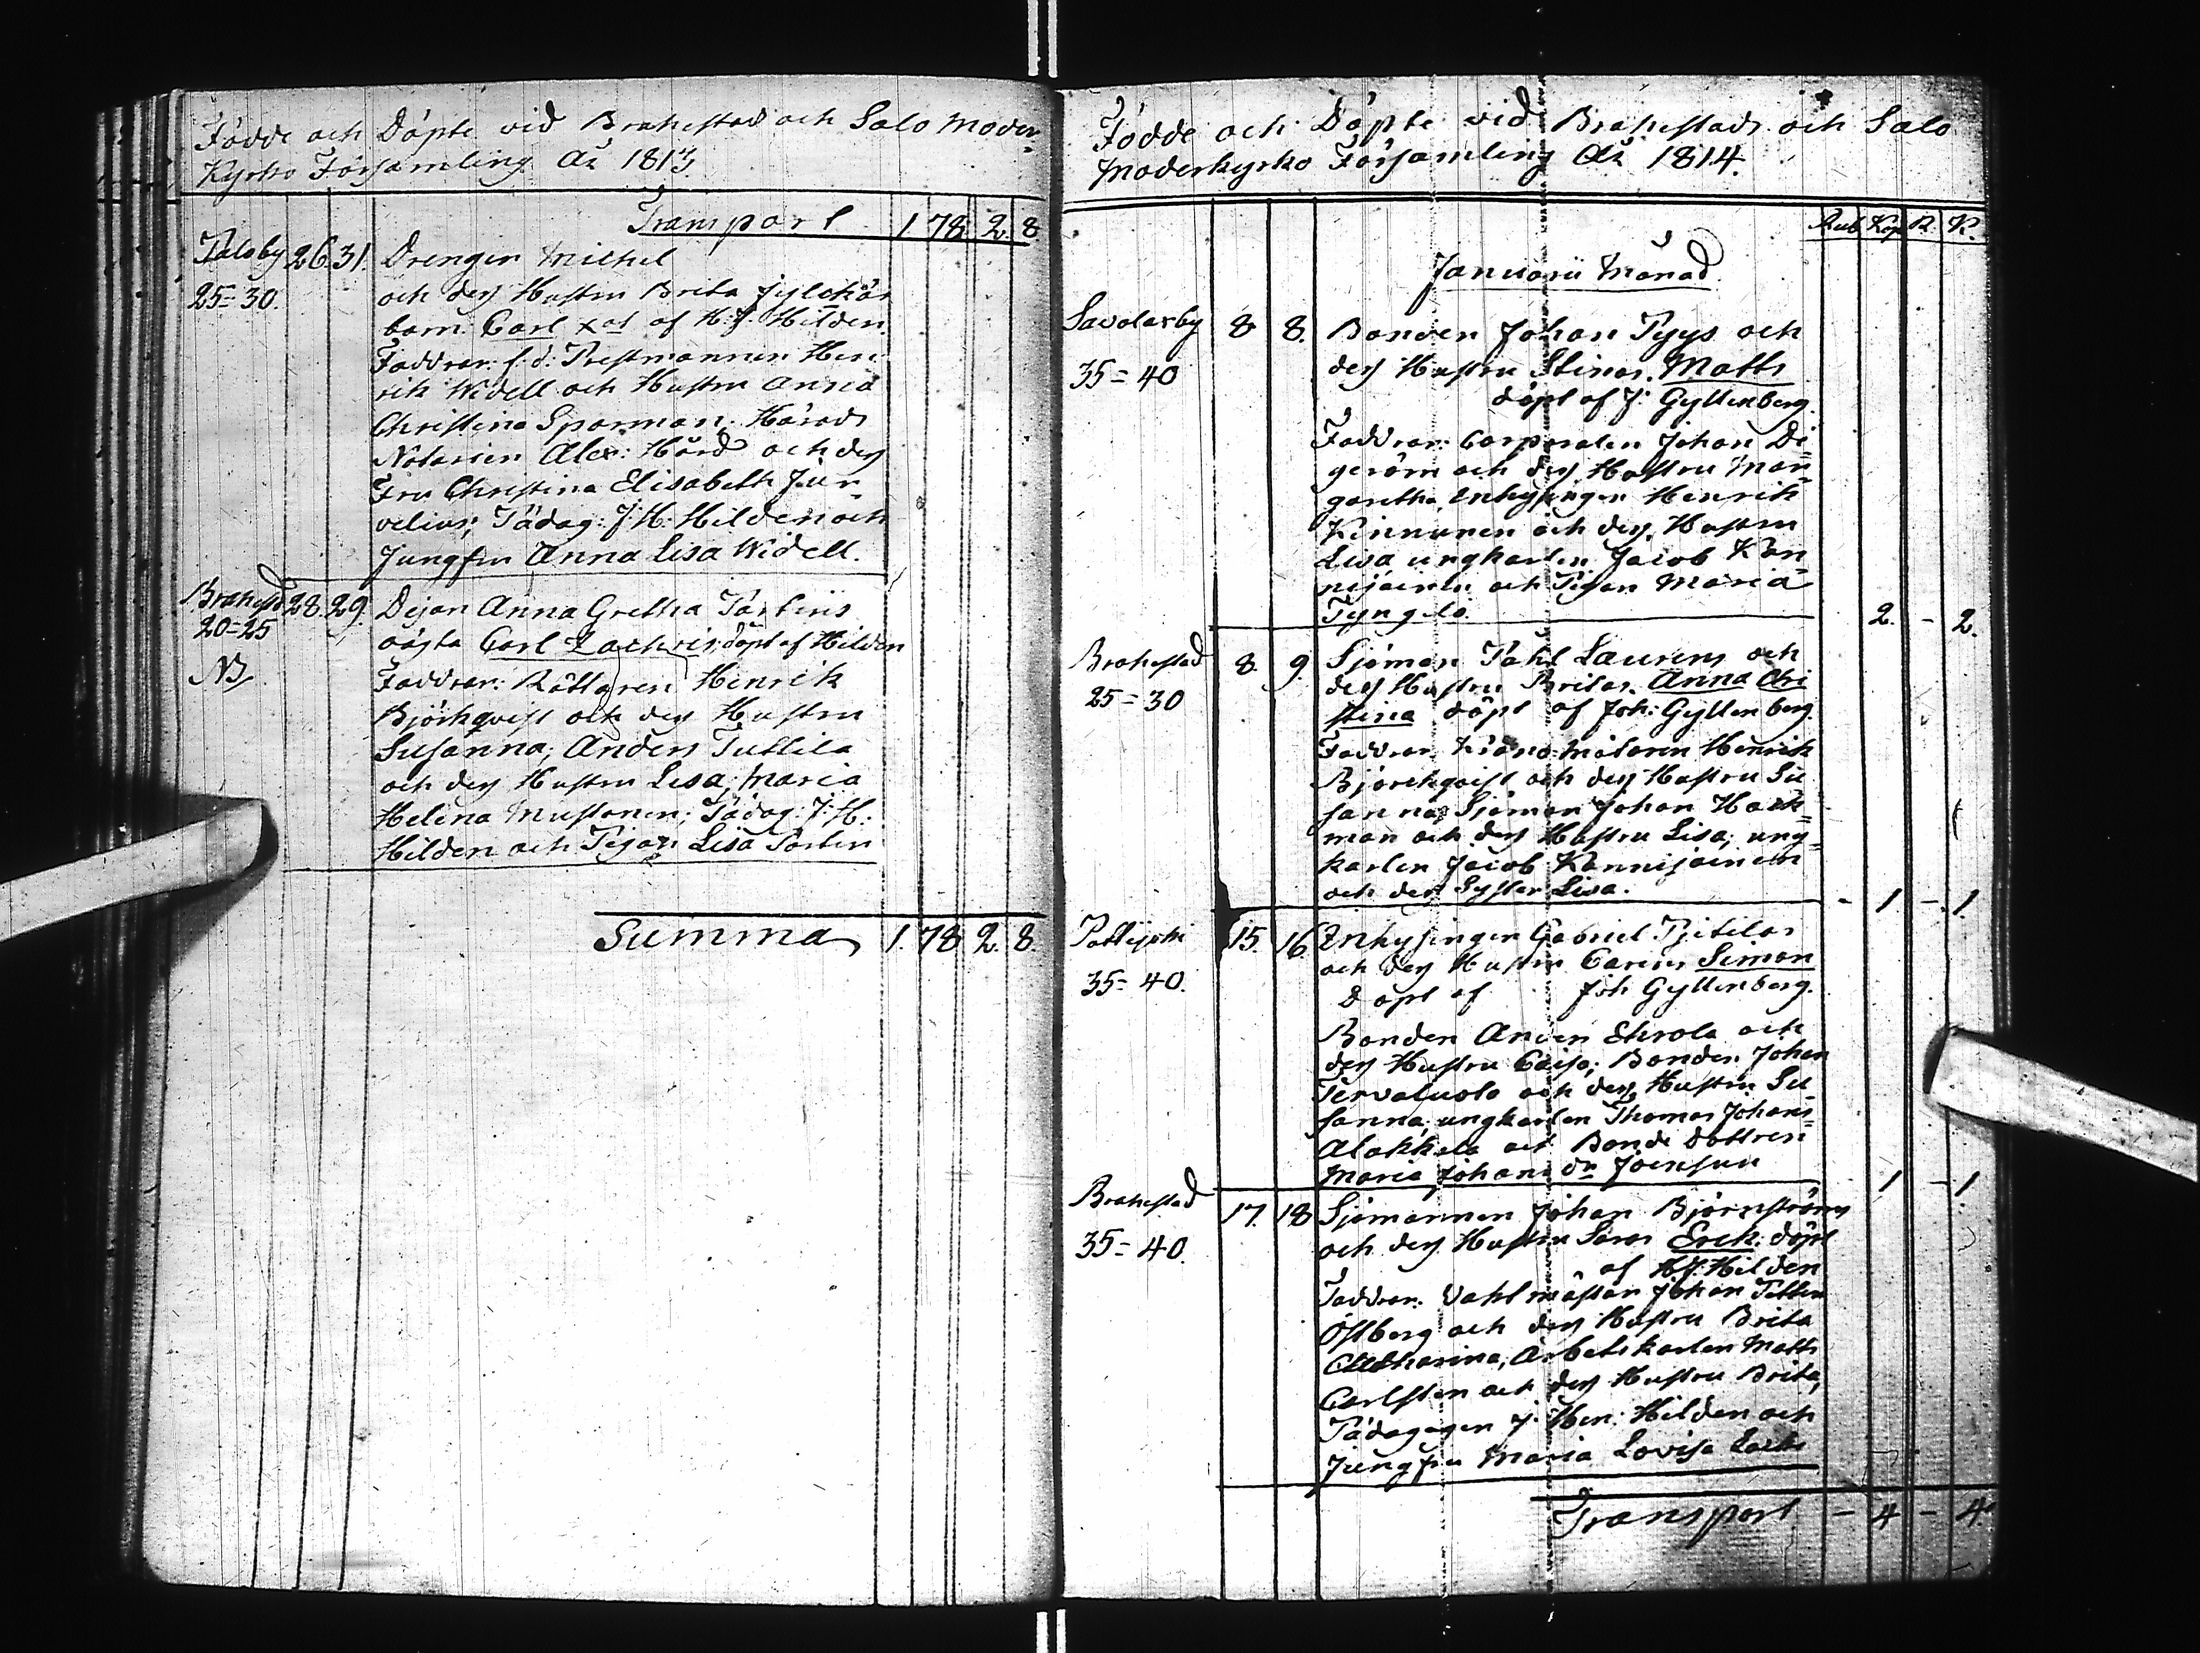 Födde och Döpte vid Brahestad och Salo Moder
Kyrko Församling År 1813.
Transport 1 78. 2. 8
Paloby 26. 31. Drengen Michel
25=30. och des Hustru Brita
barn. Carl af H: J. Hilden.
Faddrar: f. d: Prestmannen Hen
rik Widell och Hustru Anna
Christina Sparman, Härads
Notarien Alex: Hård och des
Fru Christina Elisabeth
velius; Pädag: J: H: Hilden och
Jungfru Anna Lisa Widell.
Brahestd 28. 29. Pigan Anna Gretha
20=25 oägta Carl Zachris, döpt af Hilden
NB Faddrar: Henrik
Björkqvist och des Hustru
Susanna; Anders Tuttila
och des Hustru Lisa; Maria
Helena Mustonen; Pädag: J: H:
Hilden och Pigan Lisa
Summa 1. 78 2. 8.
Födde och Döpte vid Brahestads och Salo
Moderkyrko Församling År 1814.
Rub Kop R. K.
Januarii Månad.
Savolaxby 8. 8. Bonden Johan Pyys och
35=40 des Hustru Stinas. Matts
döpt af J: Gyllenberg.
Faddrar: Corporalen Johan De
geröm och des Hustru Mar
garetha, Inhysingen Henrik
Kinnunen och des Hustru
Lisa ungkarlen Jacob Kan
nijainen och Pigan Maria
2. - 2.
Brahestad 8. 9. Sjöman Påhl Laurens och
25=30 des Hustru Britas. Anna Chri
stina döpt af Joh: Gyllenberg.
Faddrar: Henrik
Björckqvist och des Hustru Su
sanna, Sjöman Johan Hack
man och des Hustru Lisa; ung
karlen Jacob Kannijainen
och des Syster Lisa. - 1 - 1.
Pattijoki 15. 16. Inhysingen Gabriel Pietilas
35=40. och des Hustru Carins Simon
Döpt af Joh Gyllenberg.
Bonden Anders Ehrola och
des Hustru Caisa; Bonden Johan
Tervaluoto och des Hustru Su
sanna, ungkarlen Thomas Johans
Alakkala och Bonde dottren
Maria Johans dr Joensuu 1 - 1.
Brahestad 17. 18 Sjömannen Johan Björnströms
35=40. och des Hustru Saras Erik. döpt
af H: J: Hilden
Faddrar. Johan
Östberg och des Hustru Brita
Catharina; Arbetskarlen Matts
Carlsten och des Hustru Brita,
Pädagogen J: Hen: Hilden och
Jungfru Maria Lovisa
Transport - 4 - 4